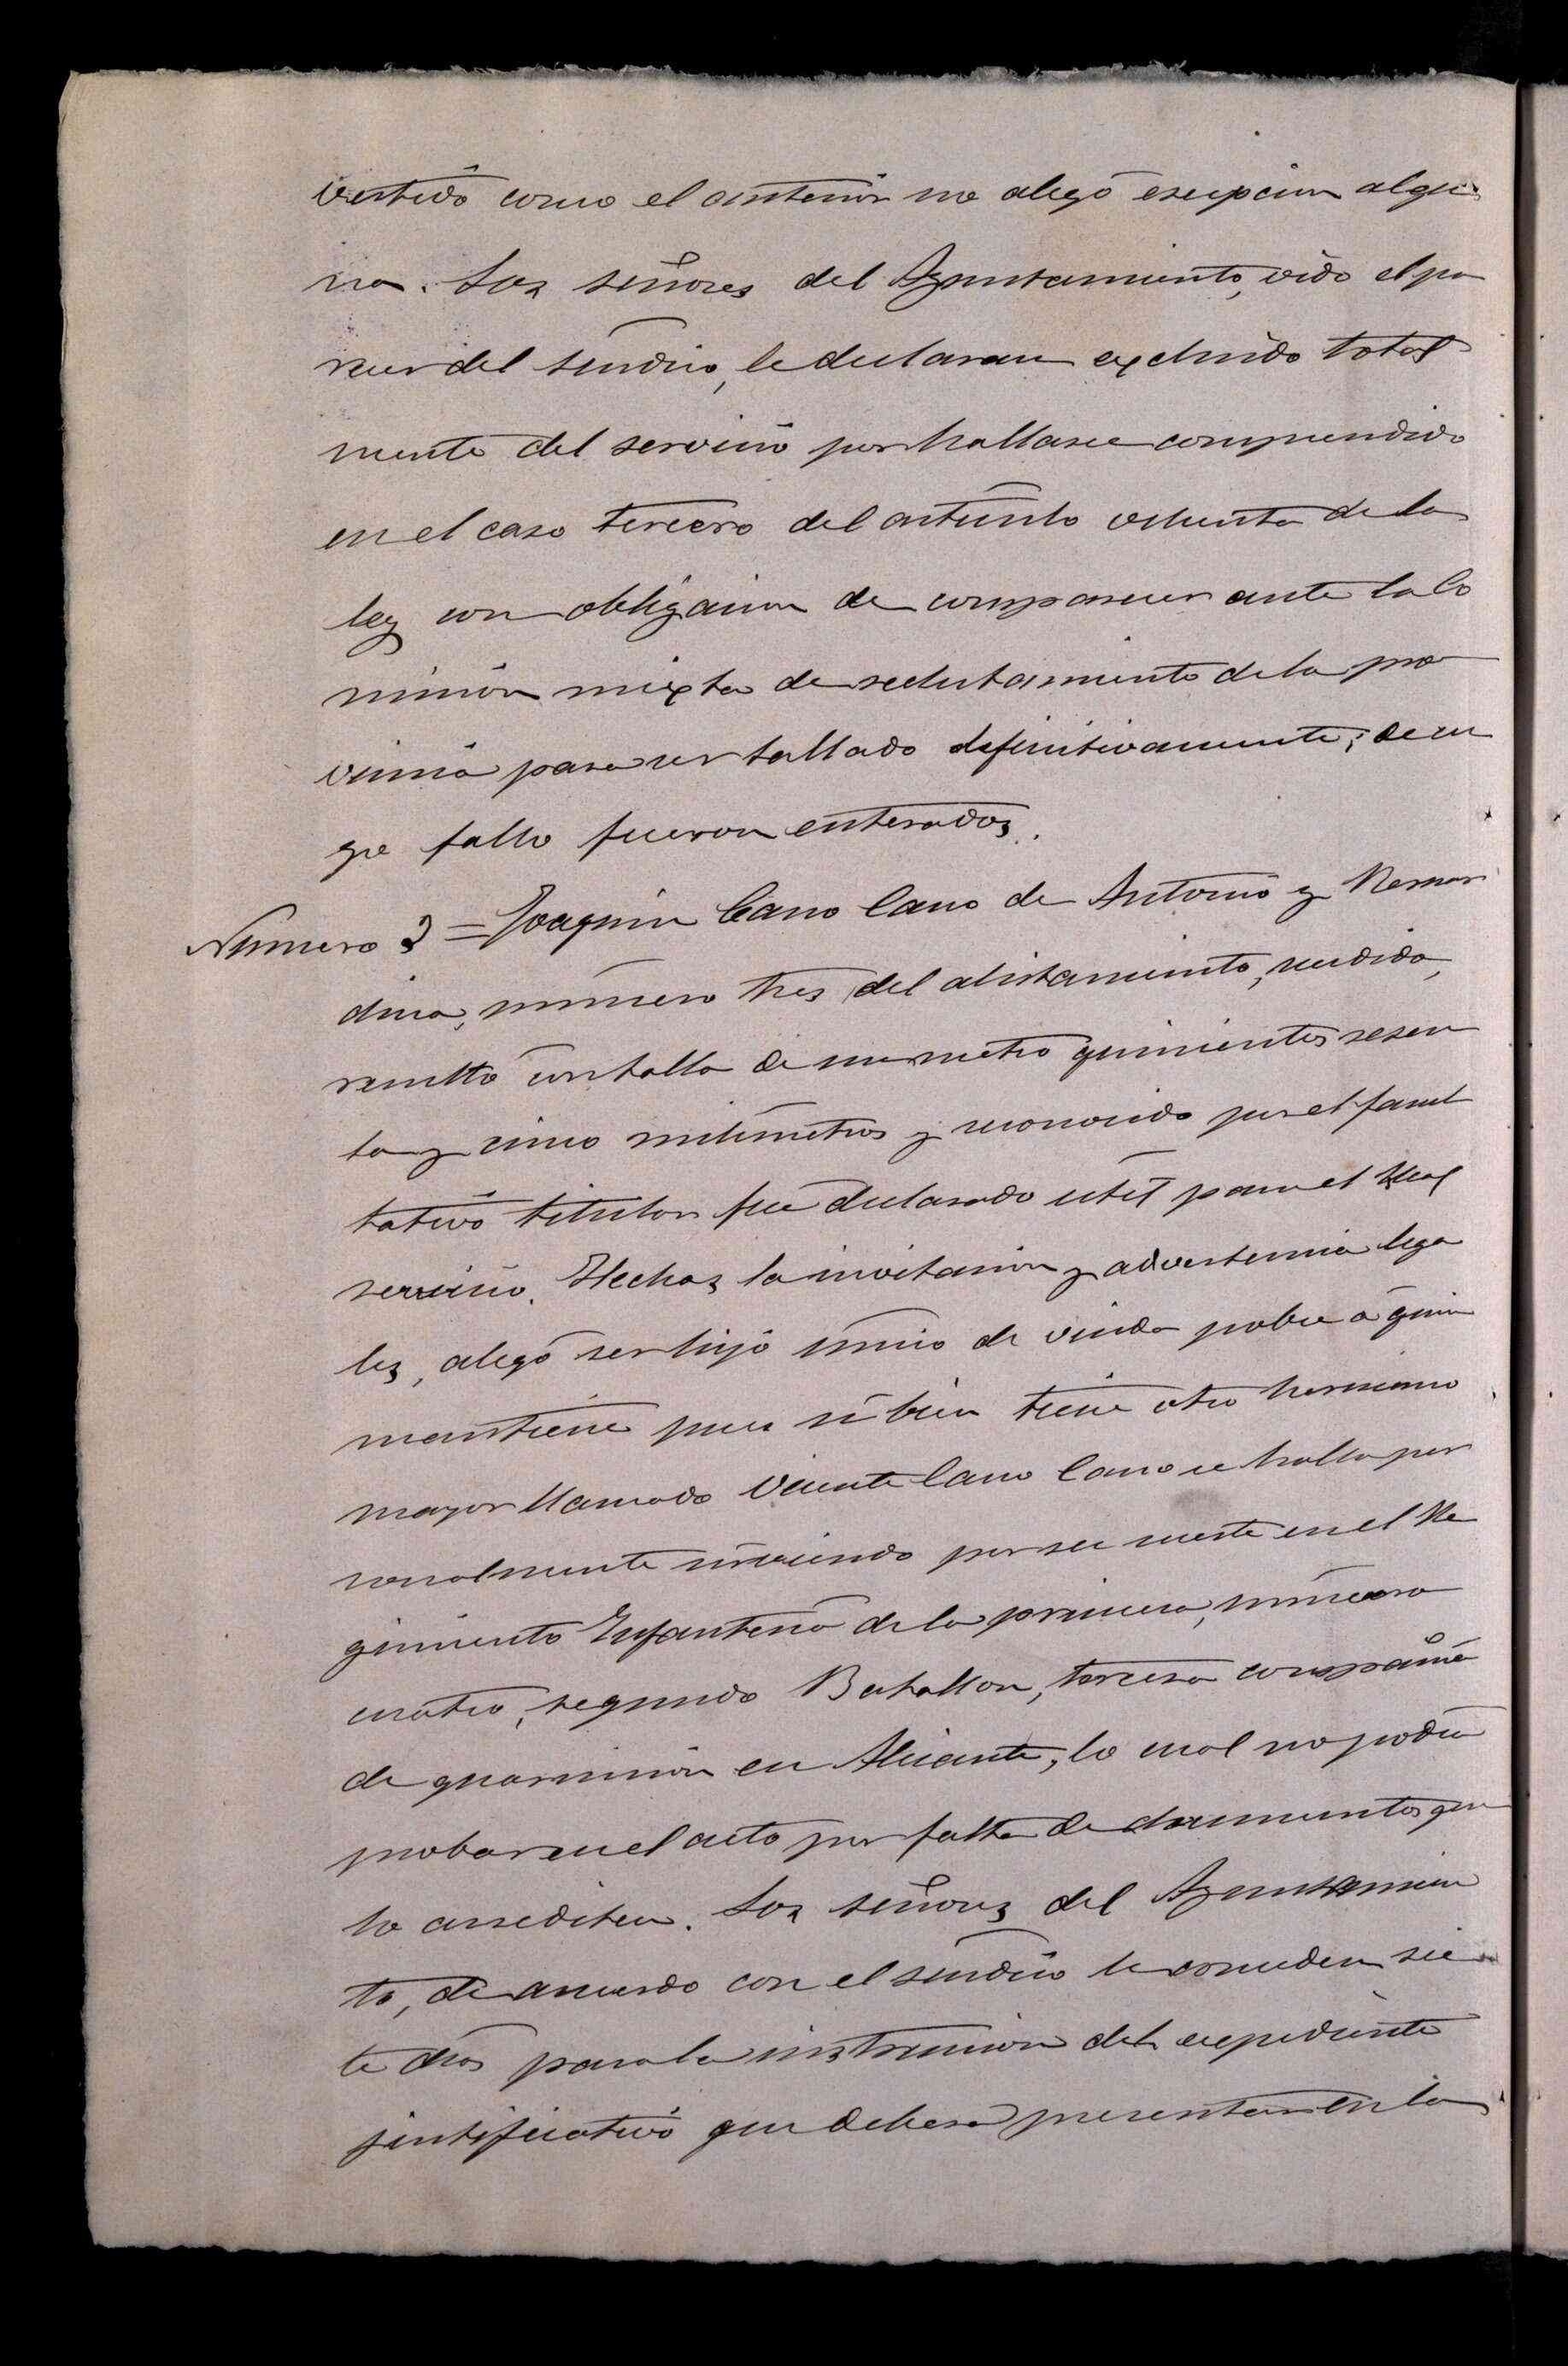 vertido como el anterior no alegó esepcion algu
na. Los señores del Ayuntamiento, oido el pa
recer del sindico, le declaran excluido total
mente del servicio por hallarse comprendido
en el caso tercero del articulo ochenta de la
ley con obligacion de comparecer ante la Co
mision mixta de reclutamiento de la pro
vincia para ser tallado definitivamente; de cu
yo fallo fueron enterados.
Numero 3 = Joaquin Cano Cano de Antonio y Bernar
dina, número tres del alistamiento, medido,
resultó con talla de un metro quinientos sesen
ta y cinco milimetros y reconocido por el facul
tativo titular fue declarado útil para el
servicio. Hechas la invitacion y advertencia lega
les, alegó ser hijo único de viuda pobre á quien
mantiene pues si bien tiene otro hermano
mayor llamado Vicente Cano Cano se halla per
sonalmente sirviendo por su suerte en el Re
gimiento Infanteria de la princesa, número
cuatro, segundo Batallon, tercera compañia
de guarnicion en Alicante, lo cual no podia
probar en el acto por falta de documentos que
lo acrediten. Los señores del Ayuntamien
to, de acuerdo con el sindico le conceden sie
te dias para la instruccion del expediente
justificativo que deberá presentar en la